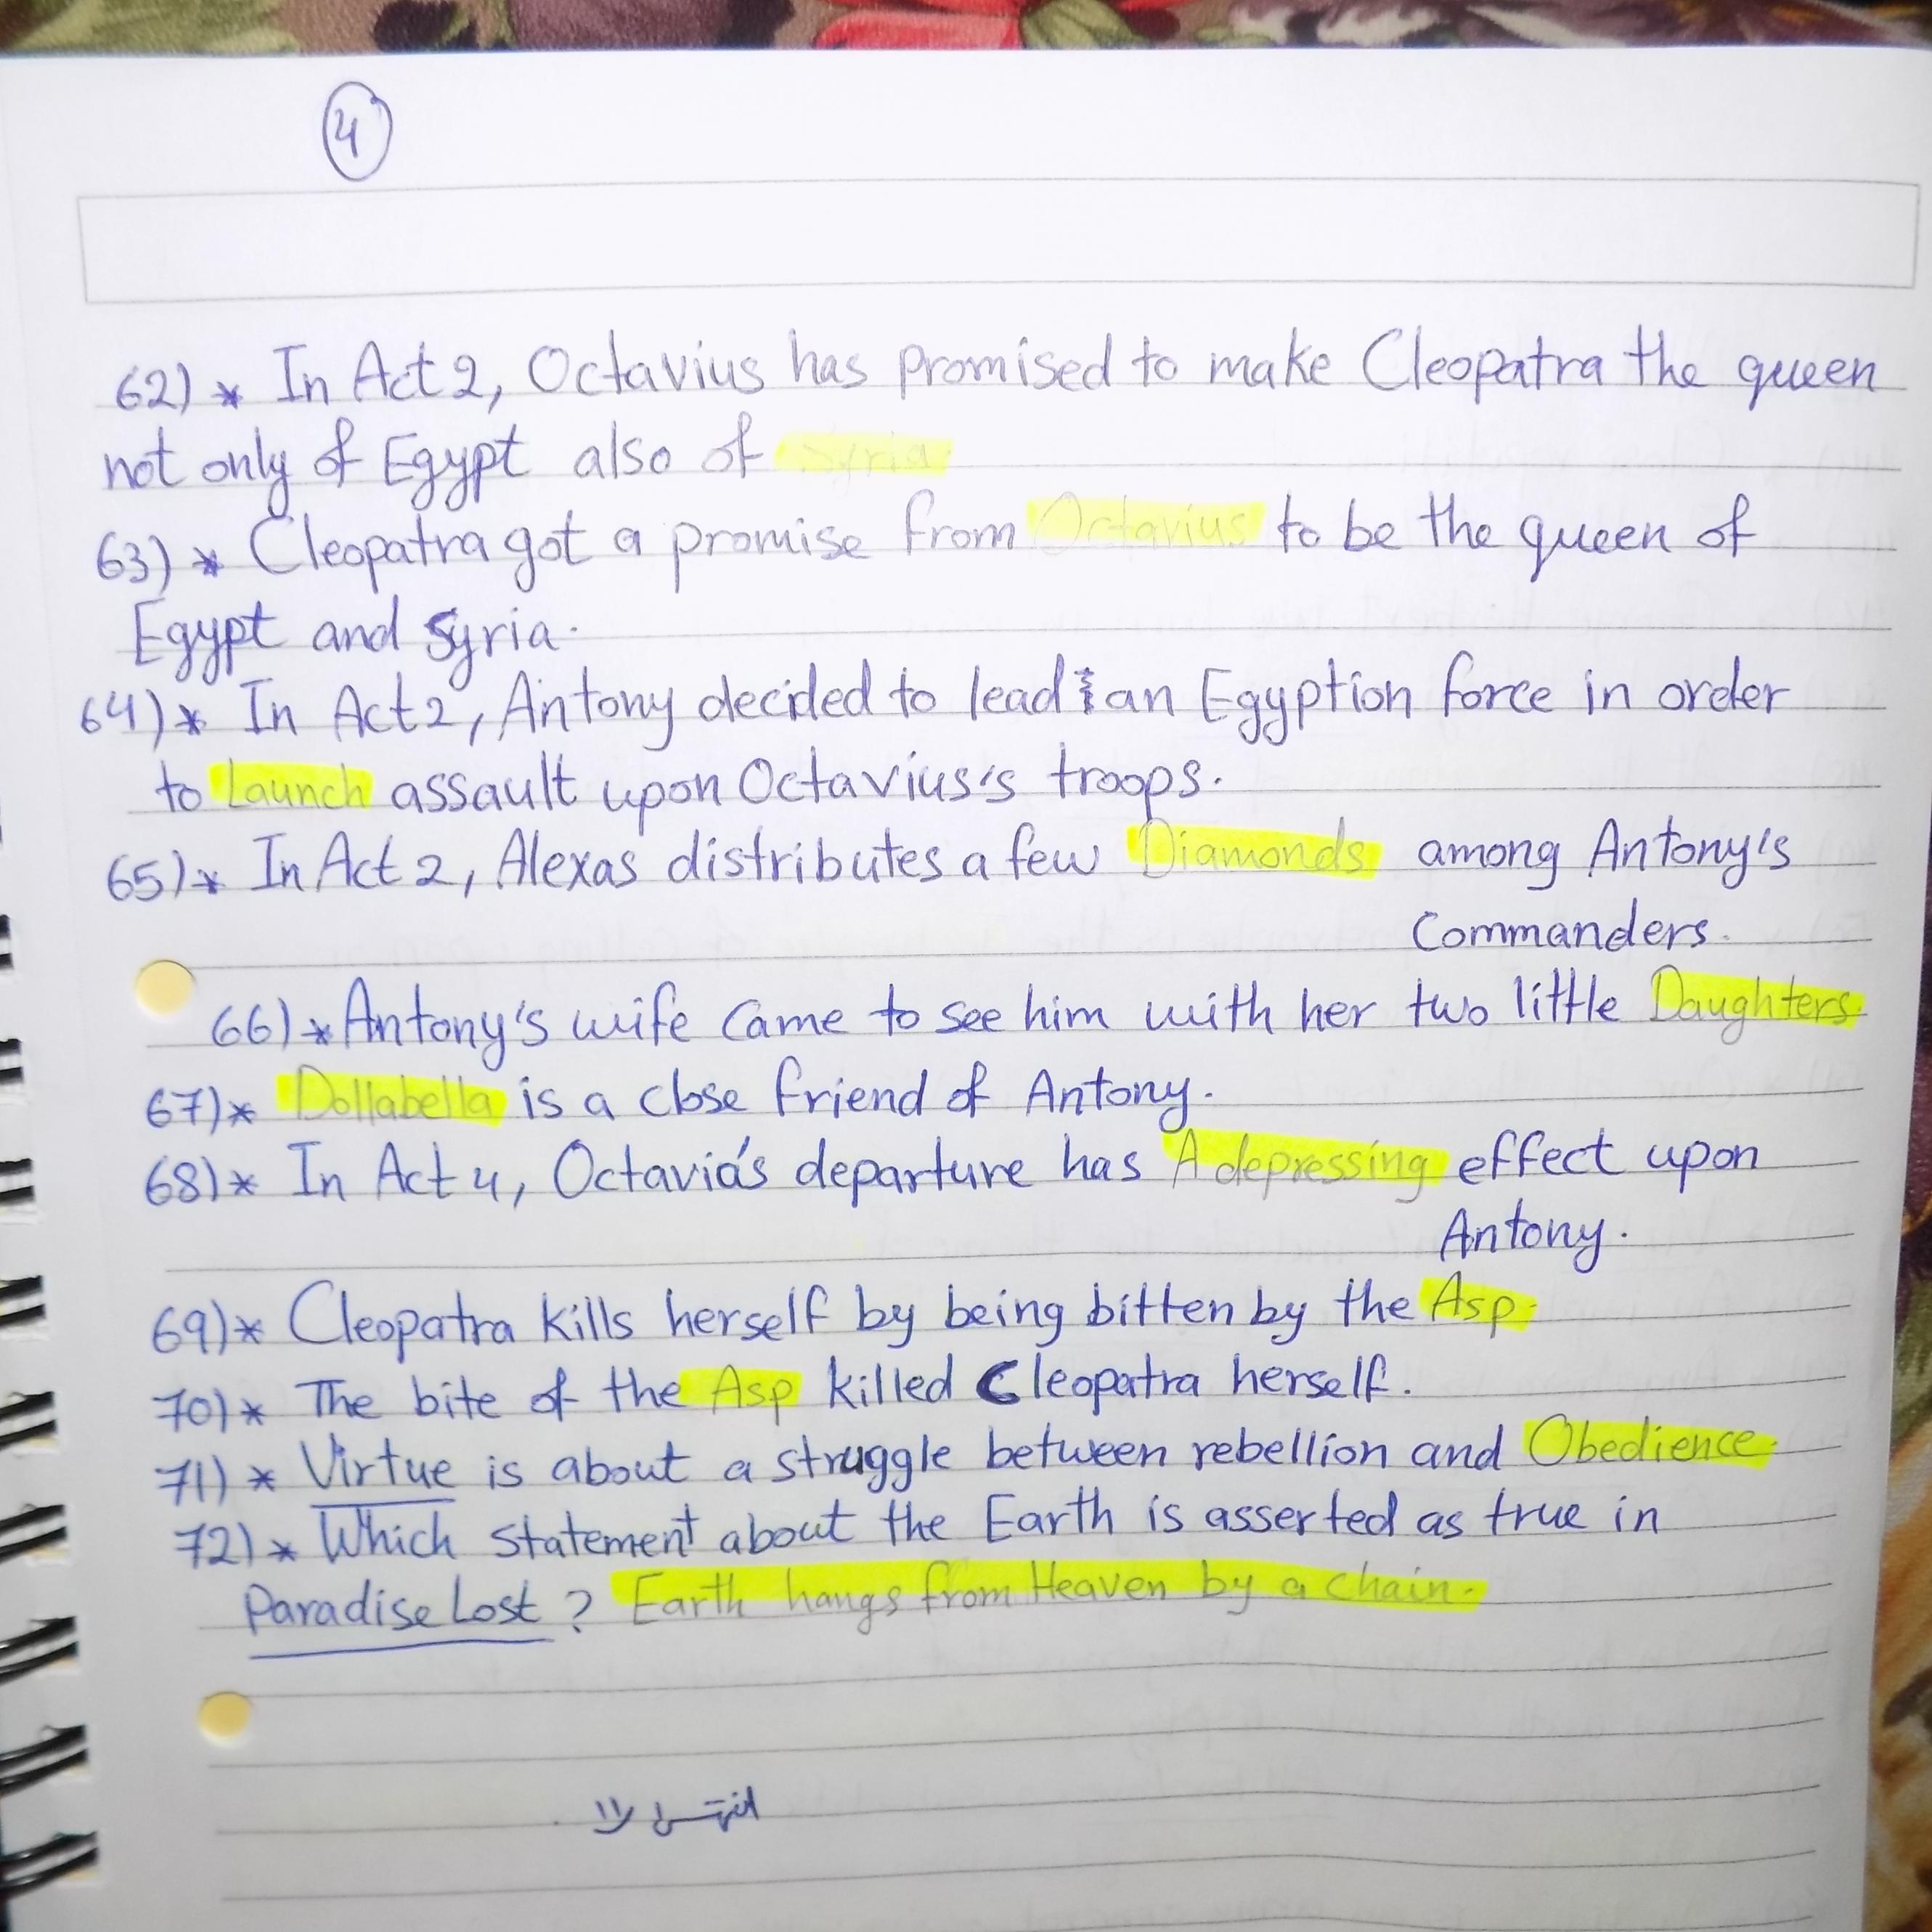 4
62) * In Act 2, Octavius has promised to make Cleopatra the queen
not only of Egypt also of Syria.
63) * Cleopatra got a promise from Octavius to be the queen of
Egypt and Syria.
64) * In Act 2, Antony decided to lead an Egyption force in order
to Launch assault upon Octavius's troops.
65) * In Act 2, Alexas distributes a few Diamonds among Antony's
Commanders.
66) * Antony's wife came to see him with her two little Daughters.
67) * Dollabella is a close friend of Antony.
68) * In Act 4, Octavia's departure has A depressing effect upon
Antony.
69) * Cleopatra kills herself by being bitten by the Asp.
70) * The bite of the Asp killed Cleopatra herself.
71) * Virtue is about a struggle between rebellion and Obedience.
72) * Which statement about the Earth is asserted as true in
Paradise Lost? Earth hangs from Heaven by a chain.
انتهى